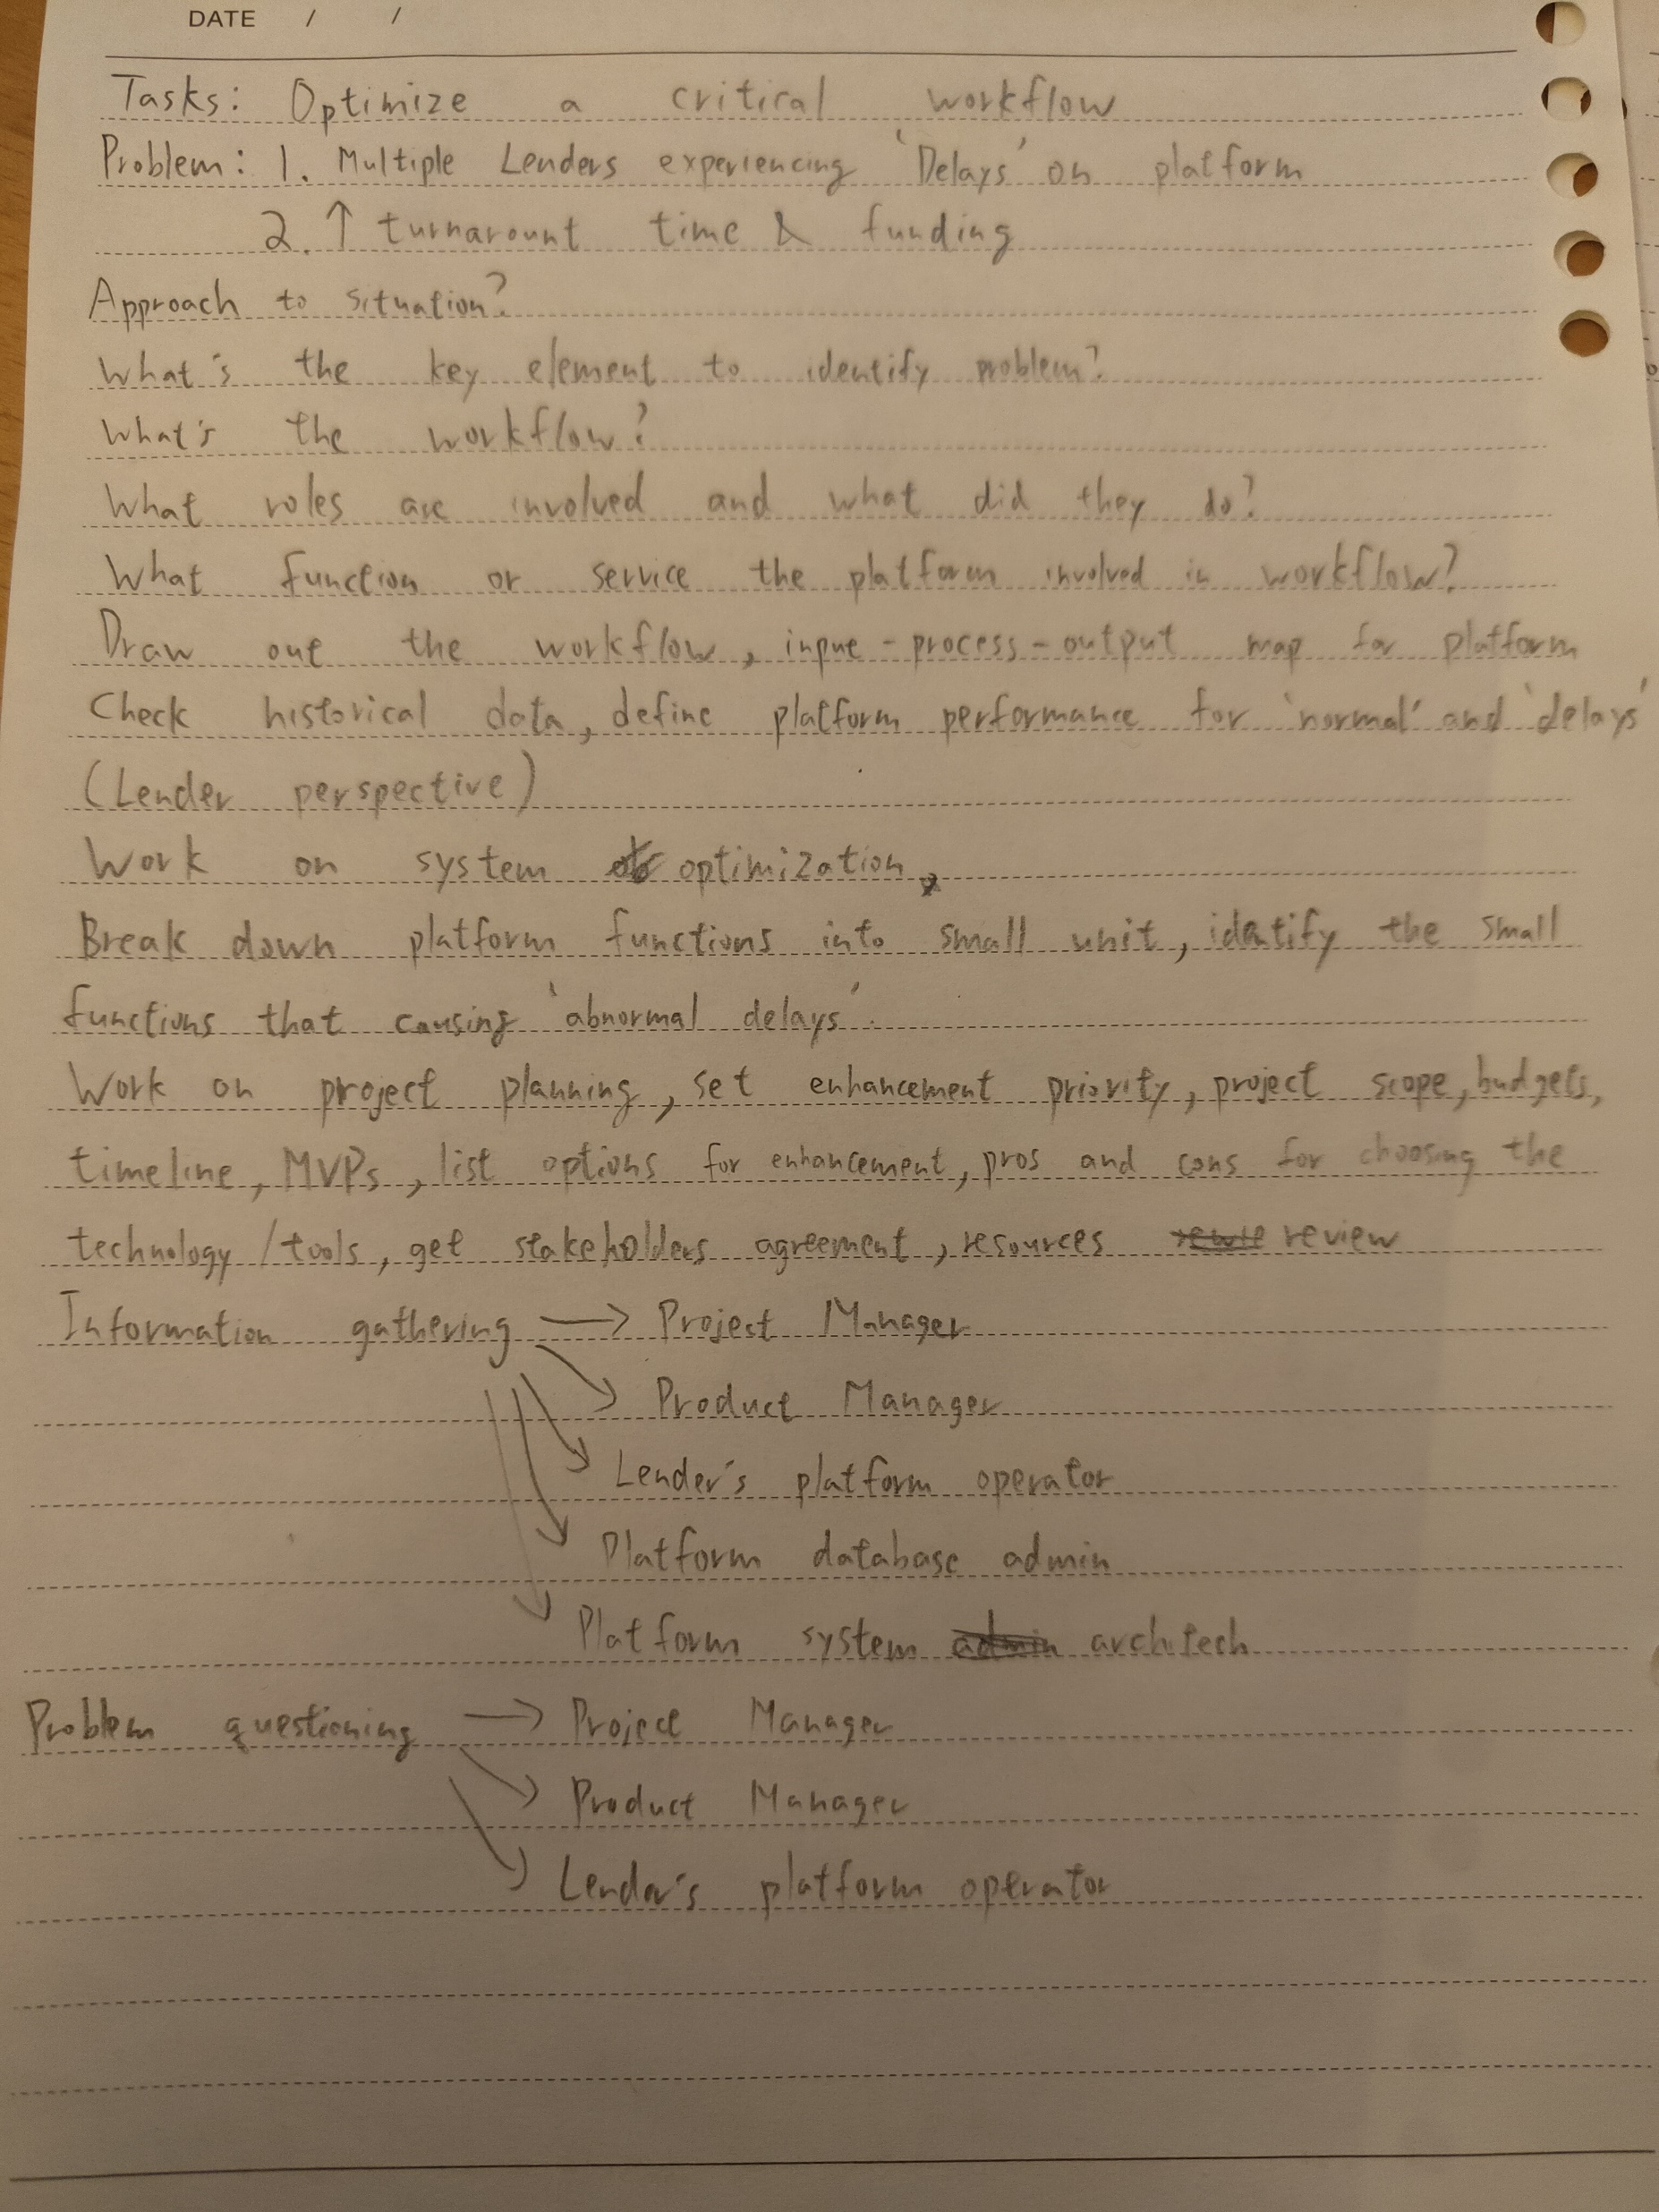 DATE / /
Tasks: Optimize a critical workflow
Problem: 1. Multiple Lenders experiencing 'Delays' on platform
2. ↑ turnarount time & funding
Approach to situation?
What's the key element to identify problem?
What's the workflow?
What roles are involved and what did they do?
What function or service the platform involved in workflow?
Draw out the workflow, input - process - output map for platform
Check historical data, define platform performance for 'normal' and 'delays'
(Lender perspective)
Work on system optimization,
Break down platform functions into small unit, identify the small
functions that causing 'abnormal delays'.
Work on project planning, set enhancement priority, project scope, budgets,
timeline, MVPs, list options for enhancement, pros and cons for choosing the
technology/tools, get stakeholders agreement, resources review
Information gathering → Project Manager
Product Manager
Lender's platform operator
Platform database admin
Platform system admin architech
Problem questioning → Project Manager
Product Manager
Lender's platform operator